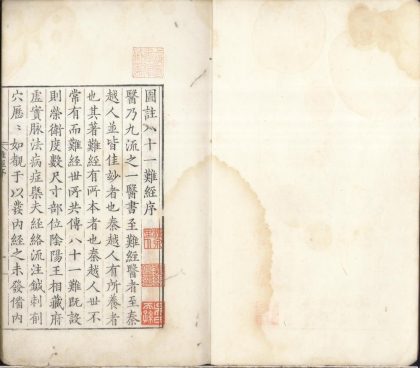 圖註八十一難經序
醫乃九流之一醫書至難經醫者至秦
越人並皆佳妙者也秦越人有所養者
也其著難經有所本者也秦越人世不
常有而難經世所共傳八十一難既談
則榮衛度數尺寸部位陰陽王相藏府
虛實脉法病症與夫經絡流注鍼刺俞
穴歷〻如觀于以發內經之未發僭內